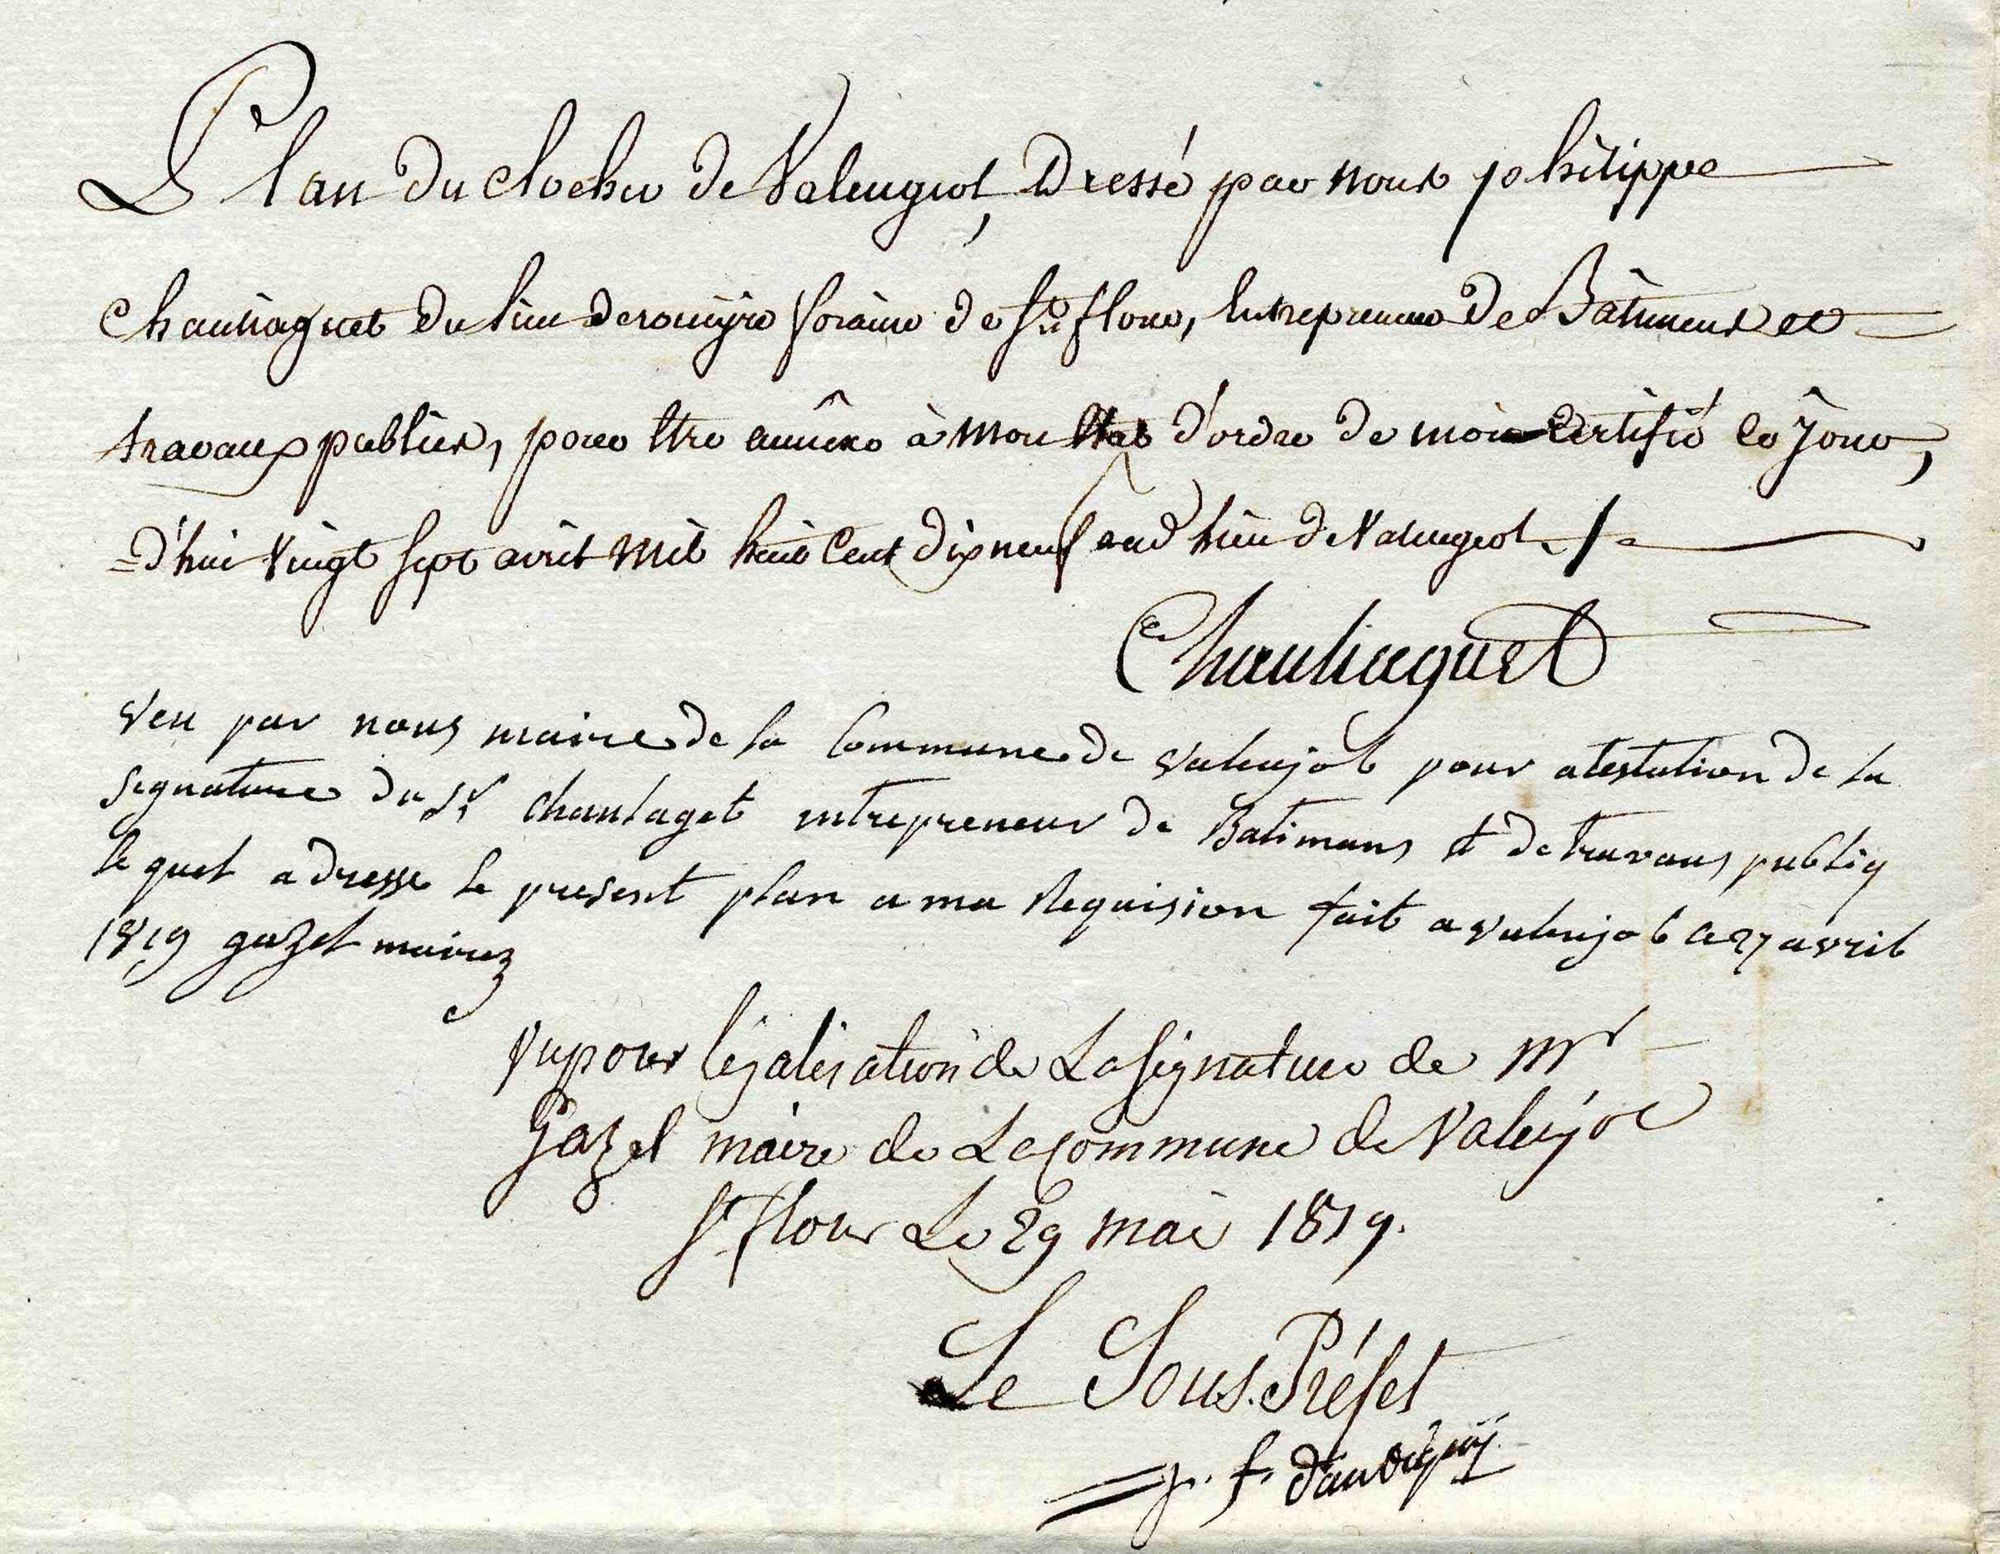 Plan du clocher de Valeugeol, Dressé par nous philippe
Chauliaguet du lieu deroueyre foraine de St. flour, Entrepreneur de Bâtiments et
travaux publics, pour être annéxé à mon état d'ordre de moi certifié ce jour,
=d'hui vingt sept avril mil huit cent dix neuf aud. lieu de Valeugeol ./.
Chauliaguet
veu par nous maire de la Commune de valeujol pour atestation de la
segnature du Sr. chaulaget entrepreneur de Batimans et de travaus publiq
le quel a dresse le present plan a ma Requision fait a valeujol ce 27 avril
1819 gazel maire
vu pour légalisation de La signature de Mr
Gazel maire de La commune de Valeujol
St. flour Le 29 mai 1819.
Le Sous-Préfet
f.